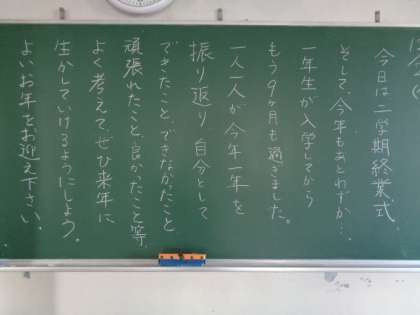 今日は二学期終業式
そして、今年もあとわずか…、
一年生が入学してから
もう9ヶ月も過ぎました。
一人一人が今年一年を
振り返り自分として
できたこと、できなかったこと
頑張れたこと、良かったこと等、
よく考えて、ぜひ来年に
生かしていけるようにしよう。
よいお年をお迎え下さい。